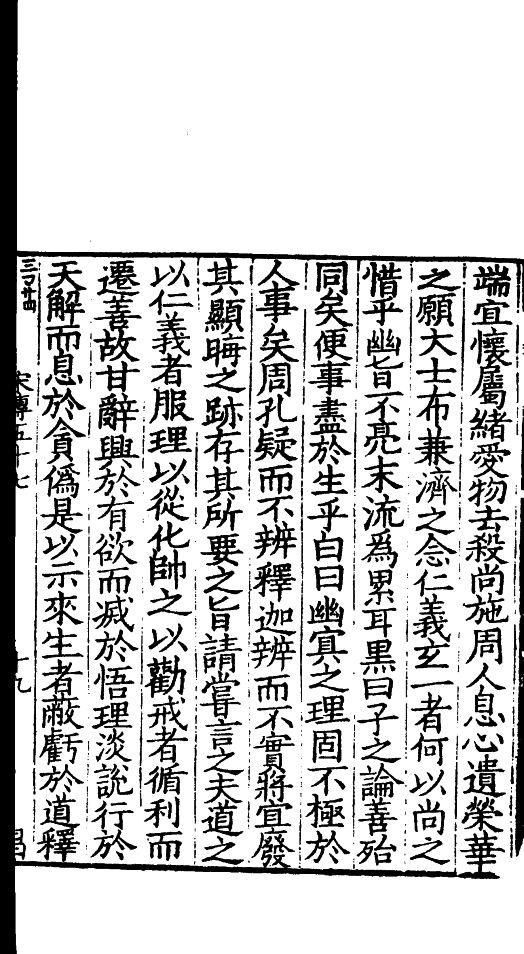 端宜懷屬緒愛物去殺尚施周人息心遺榮華
之願大士布兼濟之念仁義玄一者何以尚之
惜乎幽旨不亮末流爲累耳黑曰子之論善殆
同矣便事盡於生乎白曰幽冥之理固不極於
人事矣周孔疑而不辨釋迦辨而不實將宜廢
其顯晦之跡存其所要之旨請嘗言之夫道之
以仁義者服理以從化帥之以勸戒者循利而
遷善故甘辭興於有欲而滅於悟理淡說行於
天解而息於貪僞是以示來生者蔽虧於道釋
宋傳五十七
十九